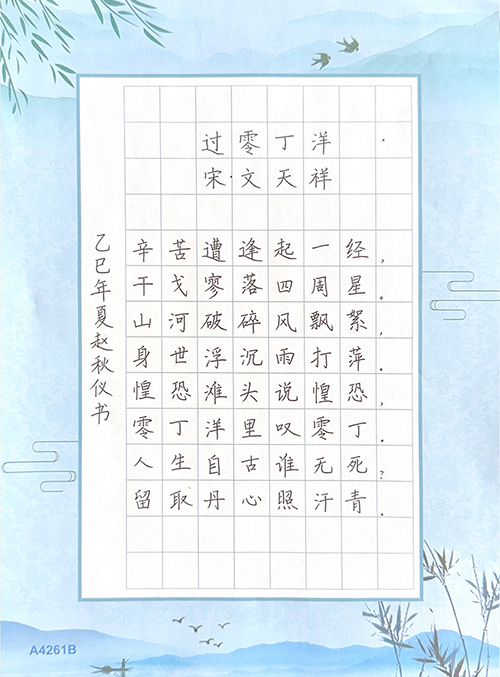 过零丁洋
宋·文天祥
辛苦遭逢起一经，
干戈寥落四周星。
山河破碎风飘絮，
身世浮沉雨打萍。
惶恐滩头说惶恐，
零丁洋里叹零丁。
人生自古谁无死？
留取丹心照汗青。
乙巳年夏赵秋仪书
A4261B